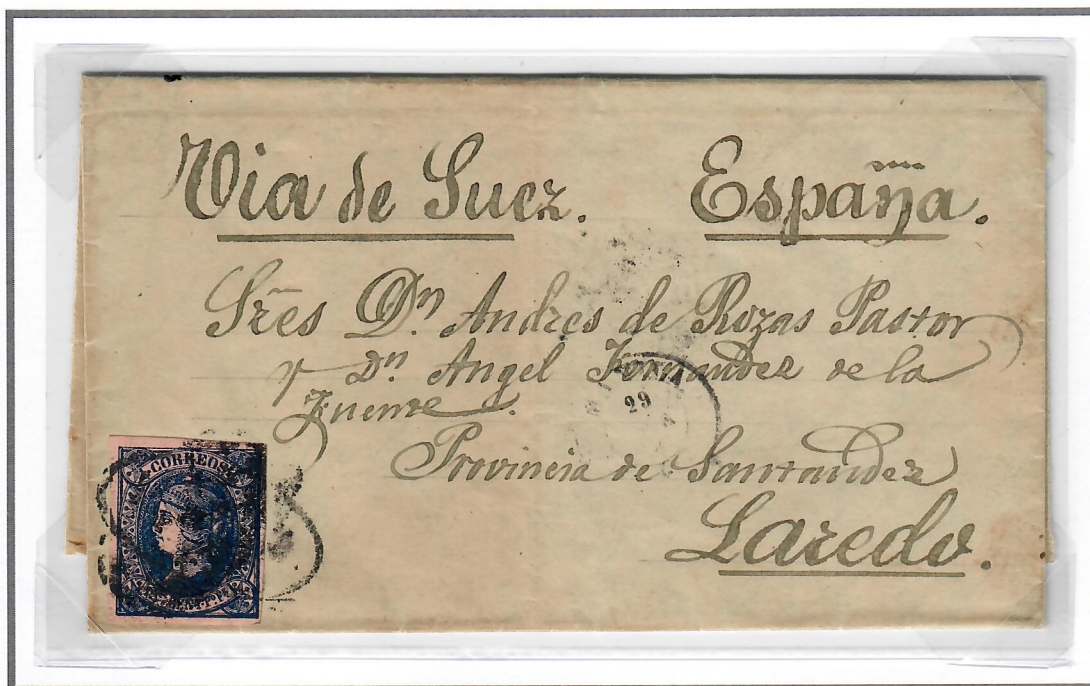 Via de Suez. España.
Sres Dn Andres de Rozas Pastor
y Dn. Angel Fernandez de la
Fuente.
29
CORREOS
Provincia de Santander
Laredo.